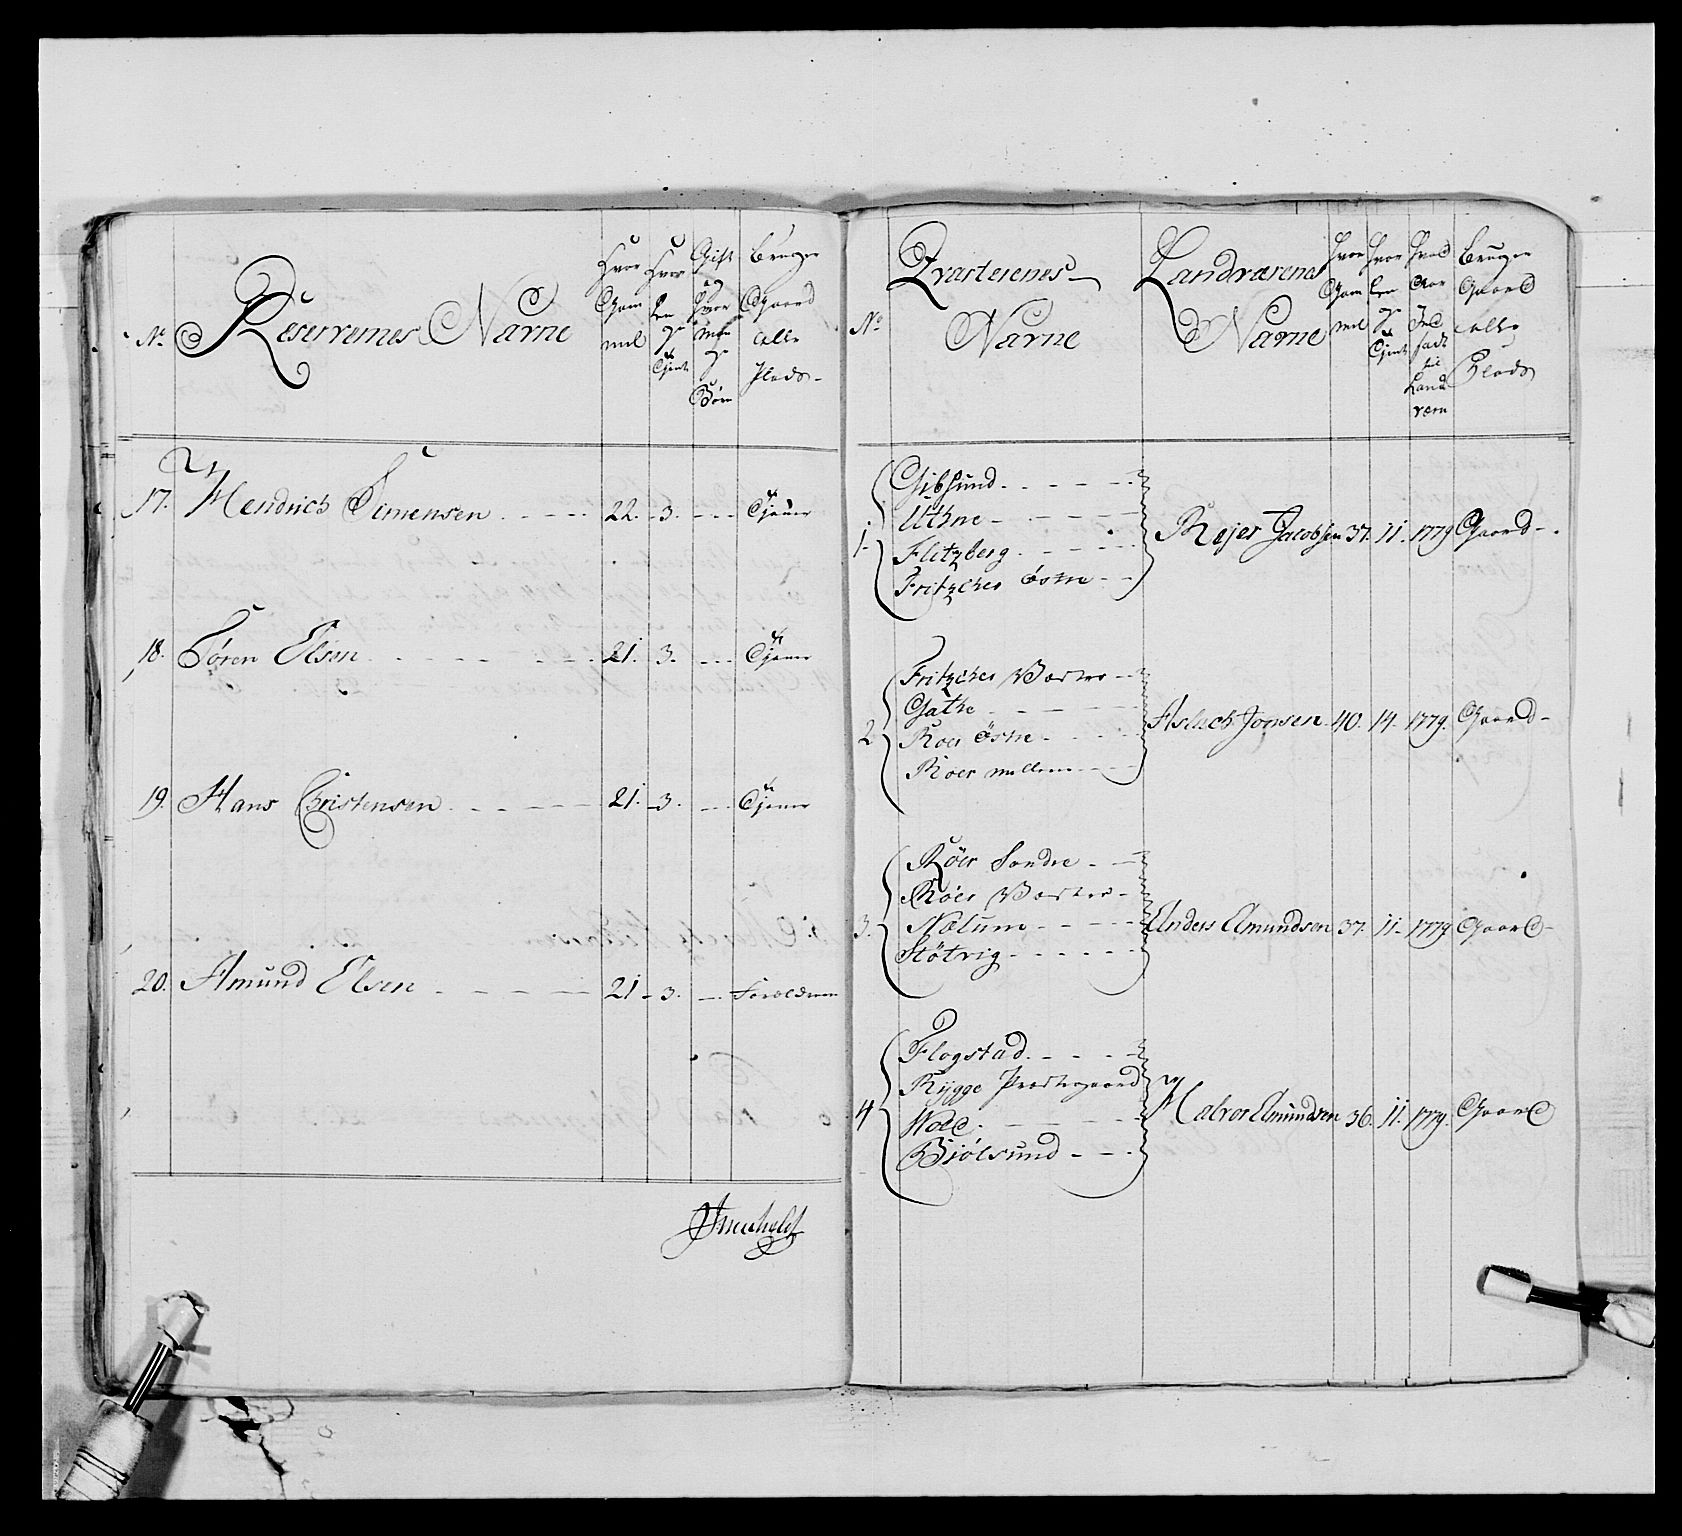 No.
Reserrernes Navne
Hvor Gam mel
Hvor Længe Tjent
Gift og Hvor mange Børn
Bruger Gaard eller Plads
17. Hendrich Simensen 22. 3. Tjener
18. Søren Elsen 21. 3. Tjener
19. Hans Christensen 21. 3. Tjener
20. Amund Elsen 21 3. Forældrene
No.
Qvarterernes Navne
Landværnes Navne
Hvor Gam mel
Hvor længe Tjent
Hvad Aar Ind sadt til Land værn
Bruger Gaard eller Plads
1. Gibsund
Uthne
Flitzberg
Fritzches Østre
Rejer Jacobsen 37. 11. 1779 Gaard
2. Fritzches Vestre
Gathe
Roer Østre
Roer mellem
Aslach Jonsen 40. 14. 1779. Gaard
3. Röer Sondre
Röer Vestre
Nælum
Støtvig
Anders Amundsen 37. 11. 1779 Gaard
4 Flogstad
Rygge Præstegaard
Wold
Biölsund
Halvor Amundsen 36. 11. 1779. Gaard